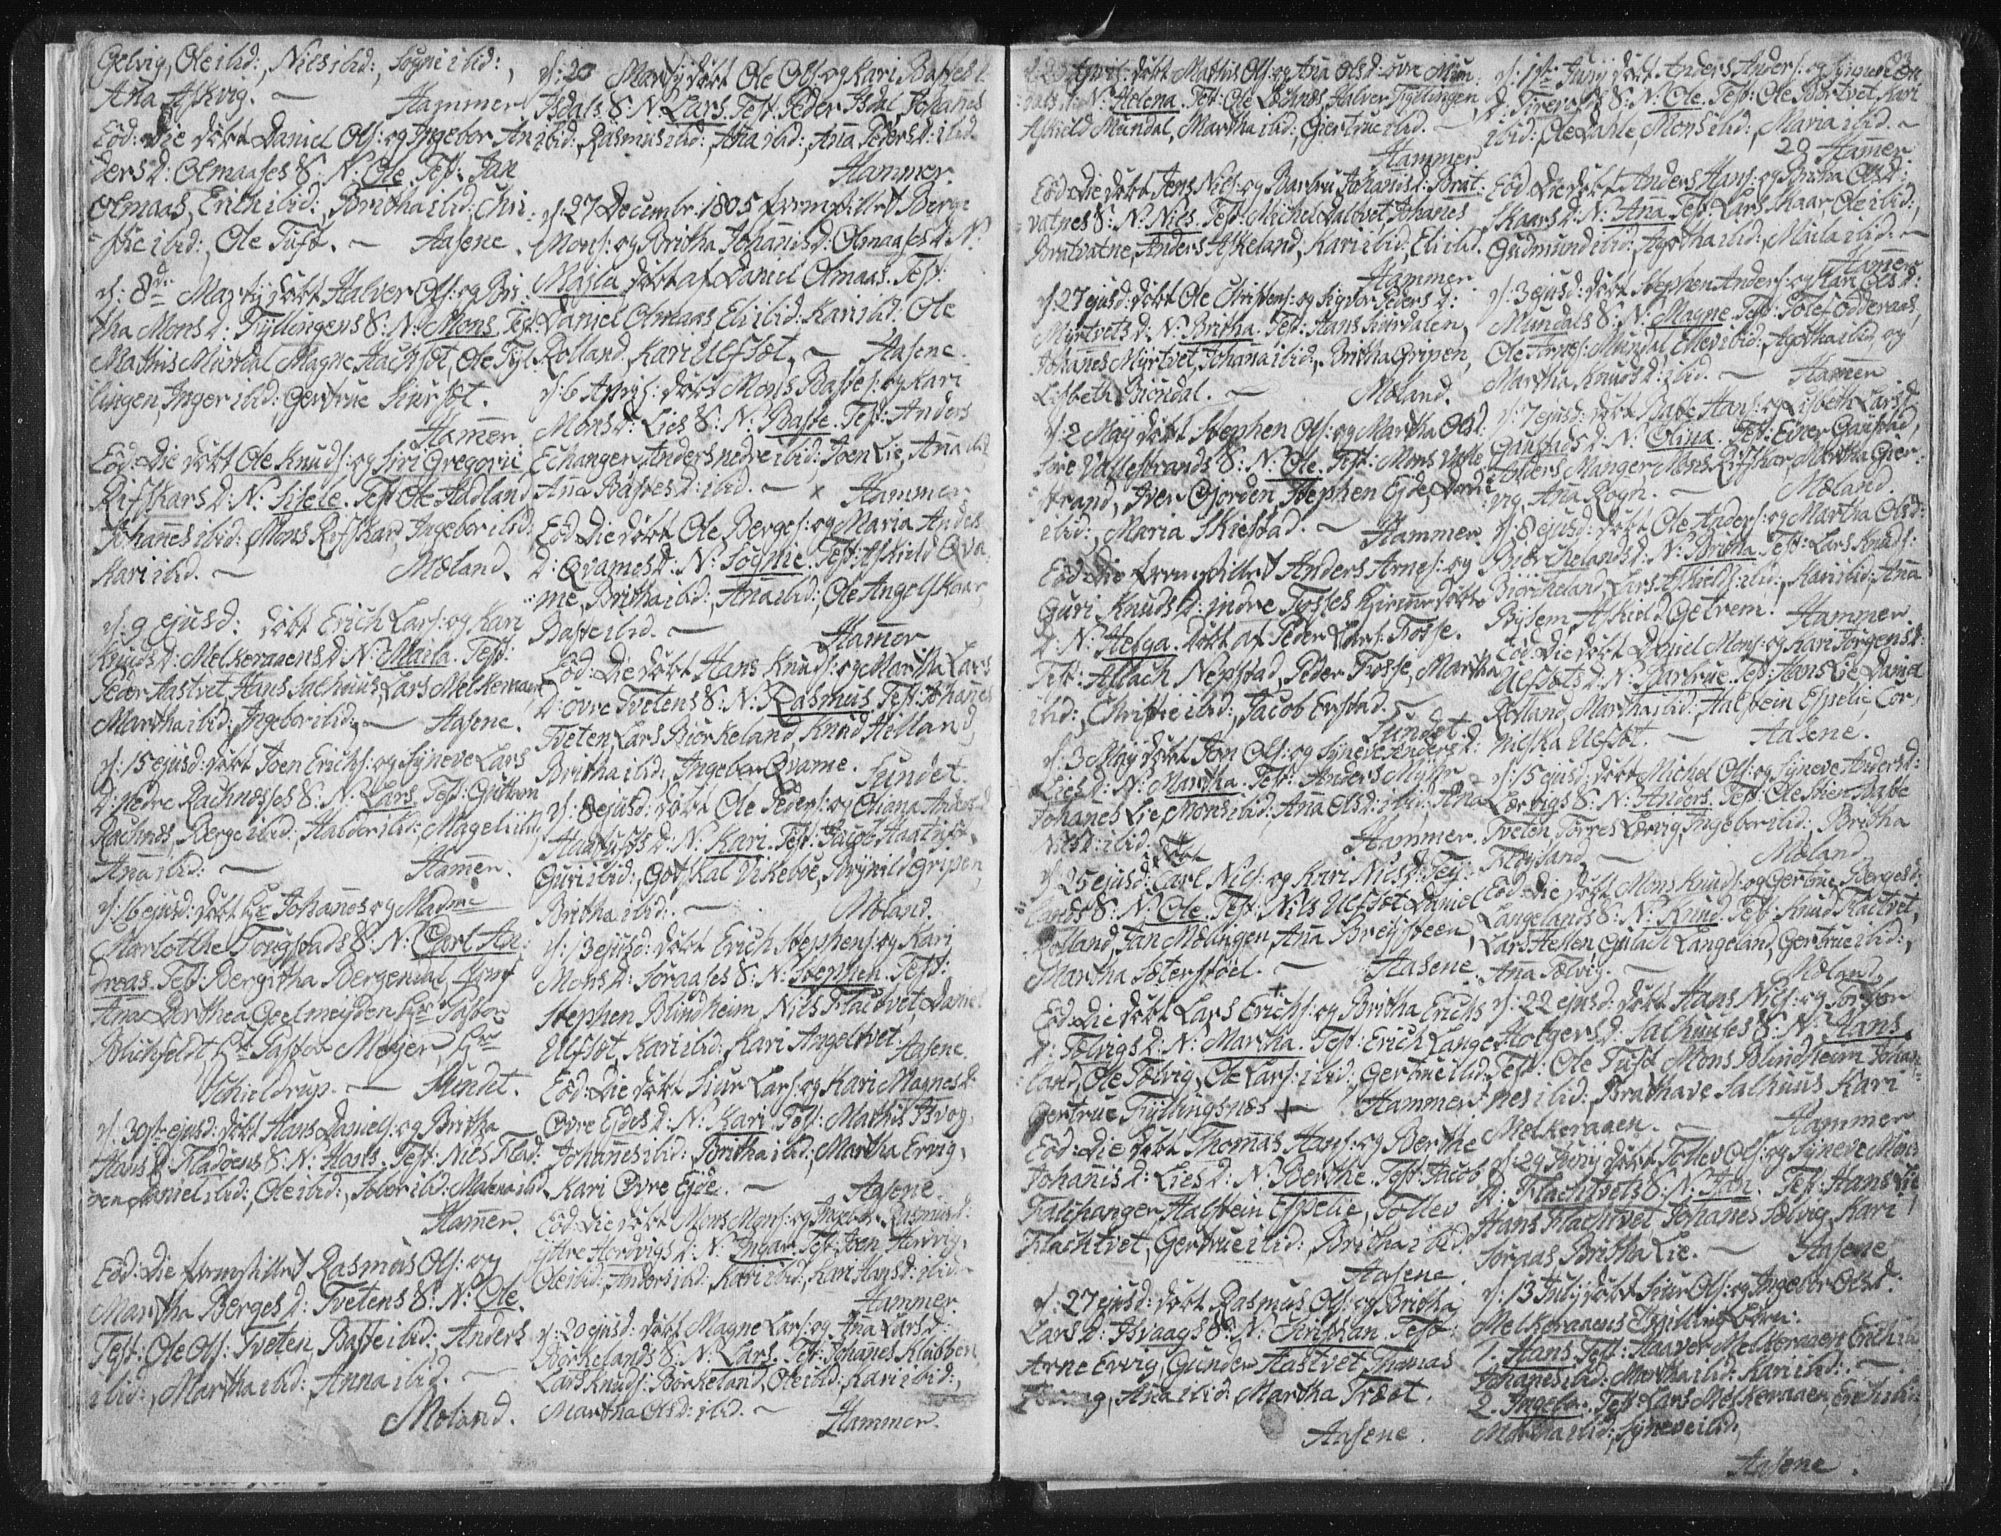 Gelvig, Ole ibid:, Niels ibid:, Sogni ibid:,
Ana Askvig. — Hammer
Eod: Die döbt Daniel Ols: og Ingebor An
ders D: Olmaases S: N: Ole. Test: Jan
Olmaas, Erich ibid:, Britha ibid: Chri
stie ibid:, Ole Tuft. — Aasene.
d: 8de Martij döbt Halver Ols: og Bri
tha Mons D: Tyllingens S: N: Mons. Test:
Mathis Mundal Magne Ole Tyl
lingen Inger ibid: Gertrue
Hammer.
Eod: Die döbt Ole Knuds: og Siri Gregorii
Rifskars D: N: Sisele. Test: Ole Hadland
Johannes ibid: Mons Rifskar, Ingebor ibid:
Kari ibid. — Moland.
d: 9 ejusd: döbt Erich Lars: og Kari
Knuds D: Melkeraaens D: N: Marta. Test:
Peder Hastvet Hans Salhuus, Lars Melkeraaen
Martha ibid:, Ingebor ibid: — Aasene.
d: 15 ejusd: döbt Joen Erichs: og Syneve Lars
D: Nedre Rachnesses S: N: Lars. Test: Guttorm
Rachnes, Berge ibid:, Haldor ibid:, Mageli ibid:
Anna ibid: — Hamer.
d: 16 ejusd: döbt Hr Johannes og Madme
Marlothe Tougstads S: N: Carl An
dreas. Test: Bergitha Bergendal, Jomf
Ana Dorthea Geelmeyden Hr Pastor
Blichfeldt Hr Pastor Meyer, Hr
Schieldrup. — Sundet.
d: 30te ejusd: döbt Hans Daniels: og Britha
Hans D: Fladöens S: N: Hans. Test: Niels Flad:
öen Daniel ibid:, Ole ibid:, ibid: Malena ibid
Hamer.
Eod: Die fremstillet Rasmus Ols: og
Martha Berges D: Tvetens S: N: Ole.
Test: Ole Ols: Tveten, Baste ibid: Anders
ibid:, Martha ibid:, Anna ibid. —
Moland.
d: 20 Martij döbt Ole Ols: og Kari Bastes D:
Isdals S: N: Lars. Test: Peder Isdal, Johannes
ibid:, Rasmus ibid:, Ana ibid:, Ana Peders D: ibid
Hammer.
d: 27 Decembr: 1805 fremstillet Berge
Mons: og Britha Johannes D: Olmaases D: N:
Magla döbt af Daniel Olmaas. Test:
Daniel Olmaas Eli ibid: Kari ibid: Ole
Rolland, Kari Ulfset, — Aasene.
d: 6 Aprijs: döbt Mons Bastes: og Kari
Mons D: Lies S: N: Baste. Test: Anders
Echanger, Anders nedre ibid: Joen Lie, Anna ibid
Ana Bastes D: ibid. — × Hammer.
Eod: Die döbt Ole Berges: og Maria Anders
D: Qvames D: N: Sognie. Test: Askield Qva
me, Britha ibid:, Ana ibid:, Ole Angelskaar,
Baste ibid. — Hammer
Eod: Die döbt Hans Knuds: og Martha Lars
D: övre Tvetens S: N: Rasmus. Test: Johannes
Tveten, Lars Biörkeland, Knud Helland,
Britha ibid:, Ingebor Qvame. Sundet.
d: 8 ejusd: döbt Ole Peders: og Oliana Anders D:
D: N: Kari. Test: Jacob
Guri ibid:, Gotskal Vikeboe, Brynild Gripen,
Britha ibid:. — Moland.
d: 13 ejusd: döbt Erich Stephens: og Kari
Mons D: Soraases S: N: Stephen. Test:
Stephen Blindheim Niels Flactvet Daniel
Ulfset, Kari ibid:, Kari Angeltvet. Aasene.
Eod: Die döbt Siur Lars: og Kari Magnes D:
Övre Eides D: N: Kari. Test: Mathis Isvog,
Johannes ibid: Britha ibid:, Martha Ervig,
Kari Övre Ejde. — Aasene.
Eod: Die döbt Mons Mons: og Ingebor Rasmus D:
yttre Hordvigs D: N: Ingar. Test: Joen Hordvig,
Ole ibid:, Anders ibid:, Kari ibid:, Kari Hans D: ibid. —
Hammer.
d: 20 ejusd: döbt Magne Lars: og Ana Lars D:
Börkelands S: N: Lars. Test: Johannes Klubben
Lars Knuds: Börkeland, Ole ibid:, Kari ibid:,
Martha Ols D: ibid. — Hammer.
d: 20 April: döbt Mathis Ols: og Ana Ols D: övre Mun
dals D: N: Helena. Test: Ole Halver Tyllingen
Askield Mundal, Martha ibid:, Giertrue ibid. —
Hammer.
Eod: Die döbt Jens Niels: og Barbru Johannes D: Brat:
vatnes S: N: Niels. Test: Michel Daltvet, Johannes
Bratvatne, Anders Askeland, Kari ibid:, Eli ibid.
Hammer.
d: 27 ejusd: döbt Ole Christens: og Sigvor Peders D:
Myrtvets D: N: Britha. Test: Hans
Johannes Myrtvet, Johana ibid:, Britha Gripen,
Lisbeth Biöndal. — Moland.
d: 2 Maij döbt Stephen Ols: og Martha Ols D:
Vallestrands S: N: Ole. Test: Mons Valle
strand, Iver Gjorden, Stephen Ejde,
ibid:, Maria Skiestad. — Hammer.
Eod: Die fremstillet Anders Arnes: og
Guri Knuds D: indre Tosses hjemme döbte
D: N: Helga. Döbt af Peder Lars: Tosse.
Test: Aslach Nepstad, Peder Tosse, Martha
ibid:, Christie ibid:, Jacob Erstad. —
Sundet.
d: 3 Maij döbt Jon Ols: og Syneve Anders D:
Lies D: N: Martha. Test: Anders
Johannes Lie, Mons ibid: Ana Ols D: ibid:, Ana
Niels D: ibid: Hammer.
d: 25 ejusd: döbt Carl Niels: og Kari Niels D: Tej:
lands S: N: Ole. Test: Niels Ulfset Daniel
Rolland, Jan Molingen, Ana Breysteen,
Martha Seterstöel. — Aasene.
Eod: Die döbt Lars Erichs: og Britha Erichs
D: Tolvigs D: N: Martha. Test: Erich Lange
land, Ole Tölvig, Ole Lars: ibid:, Gertrue ibid
Gertrue Tyllingsnes + Hammer
Eod: Die döbt Thomas Hans: og Berthe
Johannis D: Lies D: N: Berthe. Test: Jacob
Falchanger, Halstein Espelie, Tollev
Flachtvet, Gertrue ibid:, Britha ibid:
Aasene.
d: 27 ejusd: döbt Rasmus Ols: og Britha
Lars D: Isvaags S: N: Christian. Test:
Arne Ervig, Gunder Hastvet, Thomas
Ana ibid: Martha Træet.
Aasene.
d: 1ste Junij döbt Anders Anders: og
D: S: N: Ole. Test: Ole Bortvet, Kari
ibid: Ole Dahle, Mons ibid:, Maria ibid. —
29 Hamer.
Eod: Die döbt Anders Hans: og Britha Ols D:
Skaars D: N: Ana. Test: Lars Skaar, Ole ibid:,
Gudmund ibid:, Agatha ibid:, Marta ibid: —
Hamer.
d: 3 ejusd: döbt Stephen Anders: og Kari Ols D:
Mundals S: N: Magne. Test: Tolef Odderaas,
Ole Arnes: Mundal, Ellev ibid:, Agatha ibid, og
Martha Knuds D: ibid. — Hamer
d: 7 ejusd: döbt Baste Hans: og Lisbeth Lars D:
Gaustads D: N: Olina. Test: Einer Gaustad,
Anders Manger Mons Rifskar, Martha Gier:
vig, Ana Rogn. — Moland.
d: 8 ejusd: döbt Ole Anders: og Martha Ols D:
Biörchelands D: N: Britha. Test: Lars Knuds:
Biörcheland, Lars Askields: ibid:, Kari ibid: Ana
Bysem, Askield Getrem. Hammer.
Eod: Die döbt Daniel Mons: og Kari Jörgens D:
Ulfsets D: N: Barbrue. Test: Hans Lie Daniel
Rolland, Martha ibid:, Halstein Espelie, Cor,
nilska Ulfset. — Aasene.
d: 15 ejusd: döbt Michel Ols: og Syneve Anders D:
Lærvigs S: N: Anders. Test: Ole Steen Baste
Tveten Torres Lervig, Ingebor ibid:, Britha
Flöysand — Moland.
Eod: Die döbt Mons Knuds: og Gertrue Berges D:
Langelands S: N: Knud. Test: Knud Flactvet,
Lars Hesten Langeland, Gertrue ibid:,
Ana Tolvig. — Moland.
d: 22 ejusd: döbt Hans Niels: og
Holgers D: Salhuuses S: N: Hans.
Test: Ole Tuft Mons Blindheim Johan
nes ibid:, Brathave Salhuus Kari
Melkeraaen. — Hammer
d: 29 Junij döbt Tollev Ols: og Syneve Mons
D: Flachtvets S: N: Jan. Test: Hans Lie
Hans Flachtvet Johanes Tolvig Kari
Soraas Britha Lie. — Aasene
d: 13 Julij döbt Siur Ols: og Ingebor Ols D:
Melkeraaens
1. Hans. Test: Haaver Melkeraaen, Erich ibid
Johanes ibid: Martha ibid: Kari ibid: —
2. Ingebor. Test: Lars Melkeraaen, Erich ibid
Martha ibid:, Syneve ibid:,
Aasene.